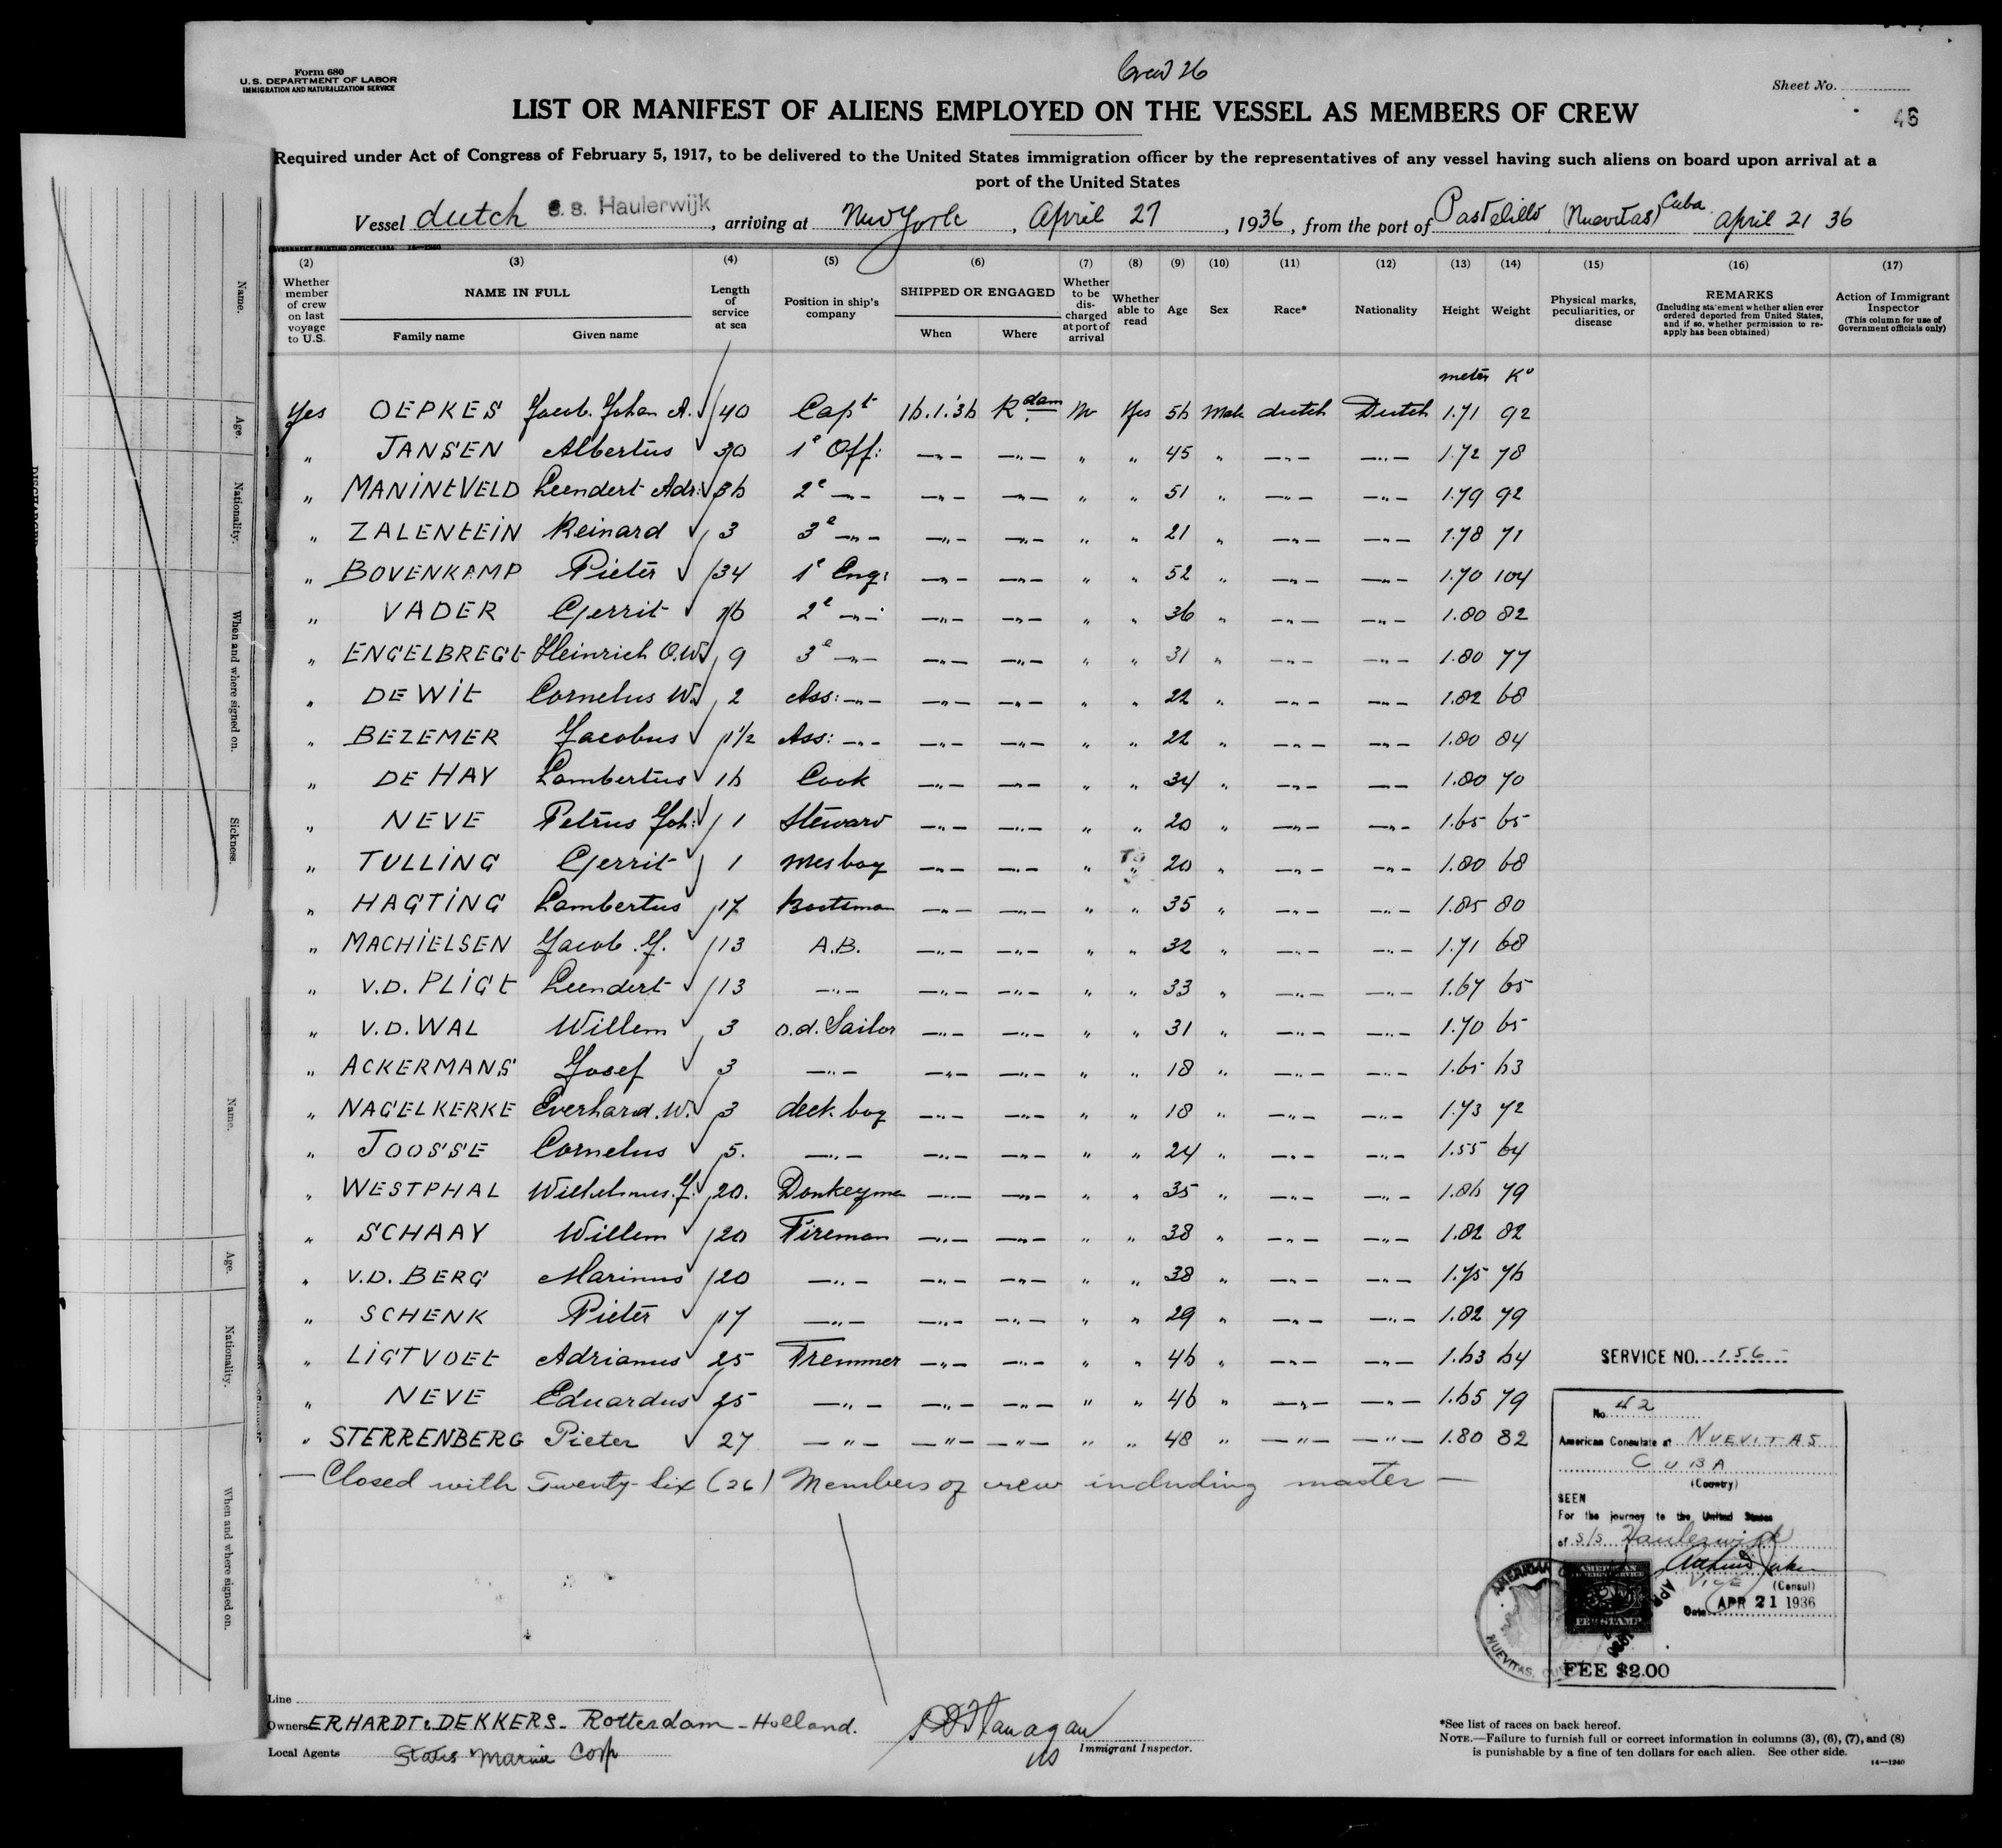 Crew 26
Form 680
U.S. DEPARTMENT OF LABOR
IMMIGRATION AND NATURALIZATION SERVICE
Sheet No.
46
LIST OR MANIFEST OF ALIENS EMPLOYED ON THE VESSEL AS MEMBERS OF CREW
Required under Act of Congress of February 5, 1917, to be delivered to the United States immigration officer by the representatives of any vessel having such aliens on board upon arrival at a
port of the United States
Vessel dutch S. S. Haulerwijk, arriving at New York, April 27, 1936, from the port of Pastelillo (Nuevitas) Cuba. April 21 36
(2) (3) (4) (5) (6) (7) (8) (9) (10) (11) (12) (13) (14) (15) (16) (17)
Whether member of crew on last voyage to U.S. NAME IN FULL Family name Given name Length of service at sea Position in ship's company SHIPPED OR ENGAGED When Where Whether to be discharged at port of arrival Whether able to read Age Sex Race* Nationality Height Weight Physical marks, peculiarities, or disease REMARKS (Including statement whether alien ever ordered deported from United States, and if so, whether permission to reapply has been obtained) Action of Immigrant Inspector (This column for use of Government officials only)
meter Ko
Yes OEPKES Jacob. Johan A. 40 Capt 16.1.'36 Rdam No Yes 56 Male dutch Dutch 1.71 92
" JANSEN Albertus 30 1e Off: —"— —"— " " 45 " —"— —"— 1.72 78
" MANINtVELD Leendert Adr: 36 2e —"— —"— —"— " " 51 " —"— —"— 1.79 92
" ZALENtEiN Reinard 3 3e —"— —"— —"— " " 21 " —"— —"— 1.78 71
" BOVENKAMP Pieter 34 1e Eng: —"— —"— " " 52 " —"— —"— 1.70 104
" VADER Gerrit 16 2e —"— —"— —"— " " 36 " —"— —"— 1.80 82
" ENGELBREGt Heinrich O.W. 9 3e —"— —"— —"— " " 31 " —"— —"— 1.80 77
" DE WIt Cornelus W. 2 Ass: —"— —"— —"— " " 22 " —"— —"— 1.82 68
" BEZEMER Jacobus 1 1/2 Ass: —"— —"— —"— " " 22 " —"— —"— 1.80 84
" DE HAY Lambertus 16 Cook —"— —"— " " 34 " —"— —"— 1.80 70
" NEVE Petrus Joh: 1 Steward —"— —"— " " 20 " —"— —"— 1.65 65
" TULLiNG Gerrit 1 mesboy —"— —"— " " 20 " —"— —"— 1.80 68
" HAGTiNG Lambertus 17 Bootsman —"— —"— " " 35 " —"— —"— 1.85 80
" MACHiELSEN Jacob. J. 13 A.B. —"— —"— " " 32 " —"— —"— 1.71 68
" V.D. PLiGt Leendert 13 —"— —"— —"— " " 33 " —"— —"— 1.67 65
" V.D. WAL Willem 3 o.d. Sailor —"— —"— " " 31 " —"— —"— 1.70 65
" ACKERMANS Josef 3 —"— —"— —"— " " 18 " —"— —"— 1.65 63
" NAGELKERKE Everhard. W. 3 deck boy —"— —"— " " 18 " —"— —"— 1.73 72
" JOOSSE Cornelus 5. —"— —"— —"— " " 24 " —"— —"— 1.55 64
" WESTPHAL Wilhelmus. J. 20. Donkeyman —"— —"— " " 35 " —"— —"— 1.86 79
" SCHAAY Willem 20 Fireman —"— —"— " " 38 " —"— —"— 1.82 82
" V.D. BERG Marinus 20 —"— —"— —"— " " 38 " —"— —"— 1.75 76
" SCHENK Pieter 17 —"— —"— —"— " " 29 " —"— —"— 1.82 79
" LiGTVOEt Adrianus 25 Tremmer —"— —"— " " 46 " —"— —"— 1.63 64
" NEVE Eduardus 25 —"— —"— —"— " " 46 " —"— —"— 1.65 79
" STERRENBERG Pieter 27 —"— —"— —"— " " 48 " —"— —"— 1.80 82
— Closed with Twenty-Six (26) Members of crew including master —
SERVICE NO. 156
No. 42
American Consulate at NUEVITAS
CUBA
(Country)
SEEN
For the journey to the United States
of S/S Haulerwijk
VICE (Consul)
Date APR 21 1936
AMERICAN
NUEVITAS, CUBA
FEE STAMP
FEE $2.00
Line
Owners ERHARDT & DEKKERS - Rotterdam - Holland.
Local Agents States Marine Corp
Flanagan
Immigrant Inspector.
*See list of races on back hereof.
NOTE.—Failure to furnish full or correct information in columns (3), (6), (7), and (8)
is punishable by a fine of ten dollars for each alien. See other side.
14—1240
Name.
Age.
Nationality.
When and where signed on.
Sickness.
Name.
Age.
Nationality.
When and where signed on.